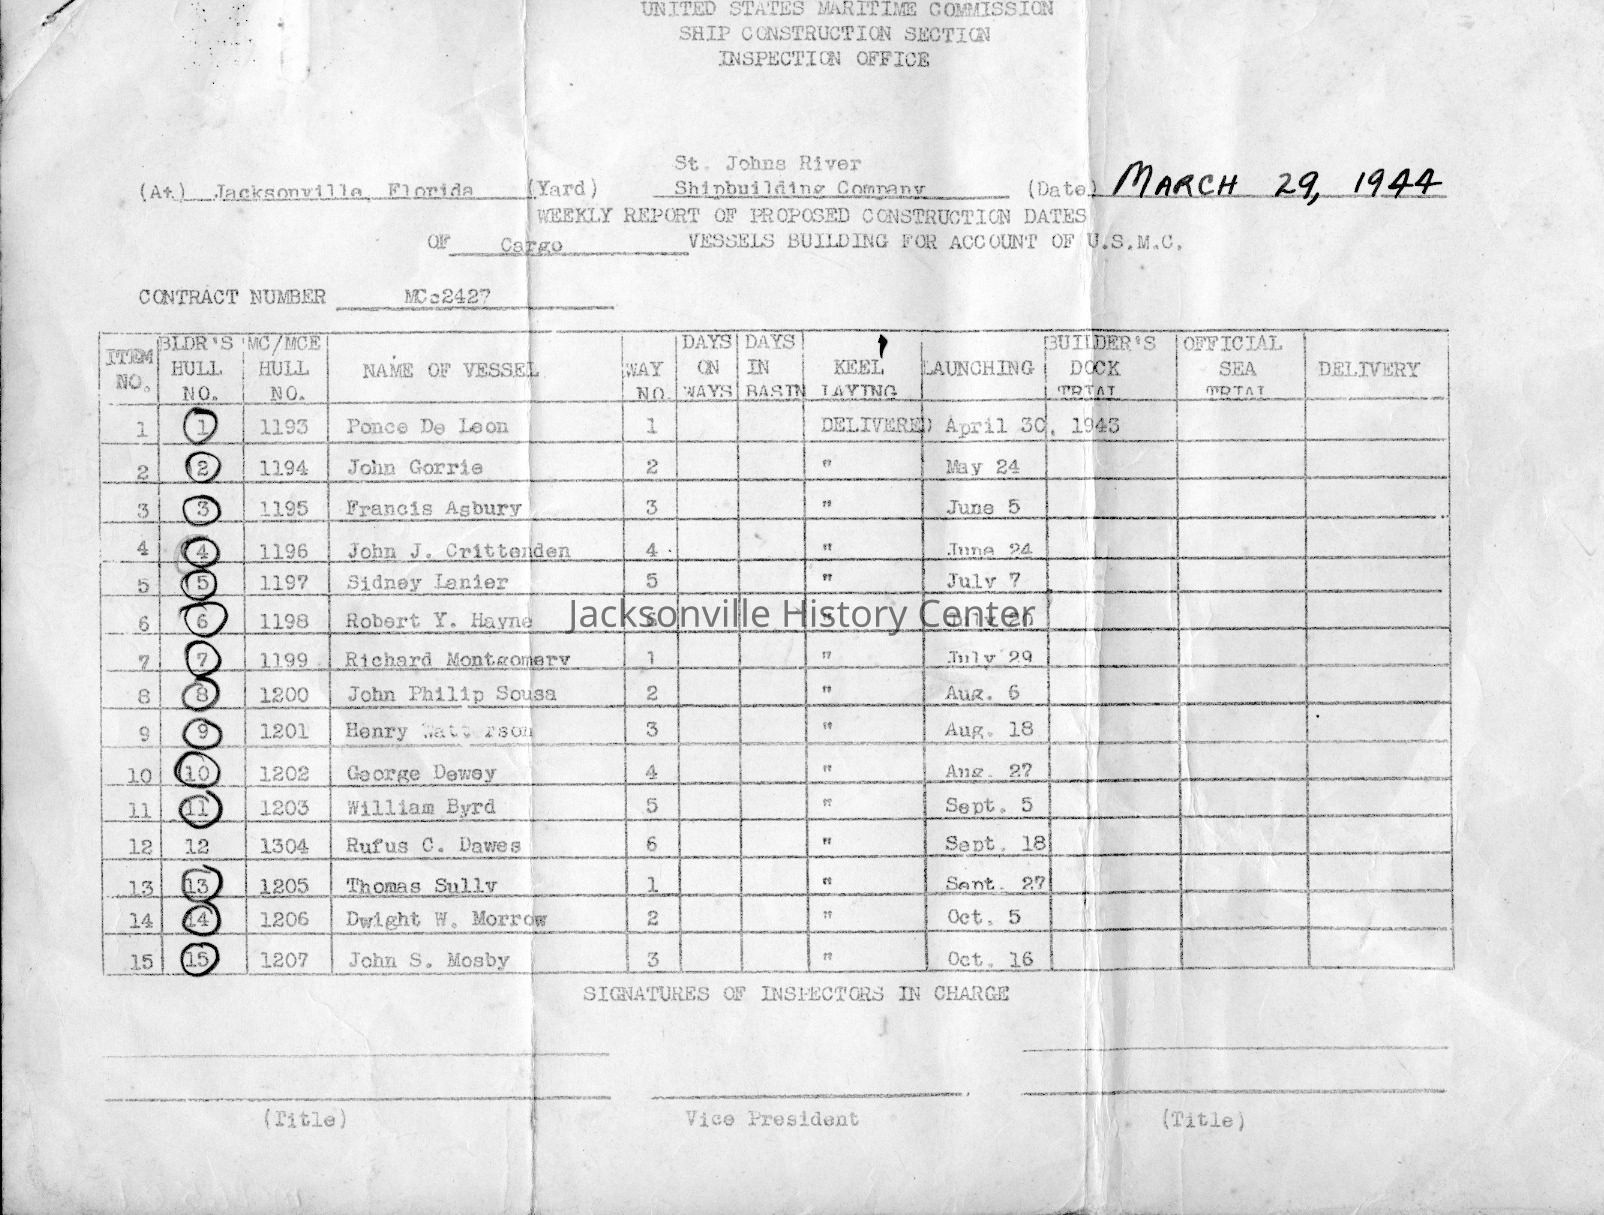 UNITED STATES MARITIME COMMISSION
SHIP CONSTRUCTION SECTION
INSPECTION OFFICE
St. Johns River
(At) Jacksonville, Florida (Yard) Shipbuilding Company (Date) MARCH 29, 1944
WEEKLY REPORT OF PROPOSED CONSTRUCTION DATES
OF Cargo VESSELS BUILDING FOR ACCOUNT OF U.S.M.C.
CONTRACT NUMBER MCc2427
ITEM NO. BLDR'S HULL NO. MC/MCE HULL NO. NAME OF VESSEL WAY NO. DAYS ON WAYS DAYS IN BASIN KEEL LAYING LAUNCHING BUILDER'S DOCK TRIAL OFFICIAL SEA TRIAL DELIVERY
1 1 1193 Ponce De Leon 1 DELIVERED April 30, 1943
2 2 1194 John Gorrie 2 " May 24
3 3 1195 Francis Asbury 3 " June 5
4 4 1196 John J. Crittenden 4 " June 24
5 5 1197 Sidney Lanier 5 " July 7
6 6 1198 Robert Y. Hayne "
Jacksonville History Center
7 7 1199 Richard Montgomery 1 " July 29
8 8 1200 John Philip Sousa 2 " Aug. 6
9 9 1201 Henry Watterson 3 " Aug. 18
10 10 1202 George Dewey 4 " Aug. 27
11 11 1203 William Byrd 5 " Sept. 5
12 12 1304 Rufus C. Dawes 6 " Sept. 18
13 13 1205 Thomas Sully 1 " Sept. 27
14 14 1206 Dwight W. Morrow 2 " Oct. 5
15 15 1207 John S. Mosby 3 " Oct. 16
SIGNATURES OF INSPECTORS IN CHARGE
(Title) Vice President (Title)